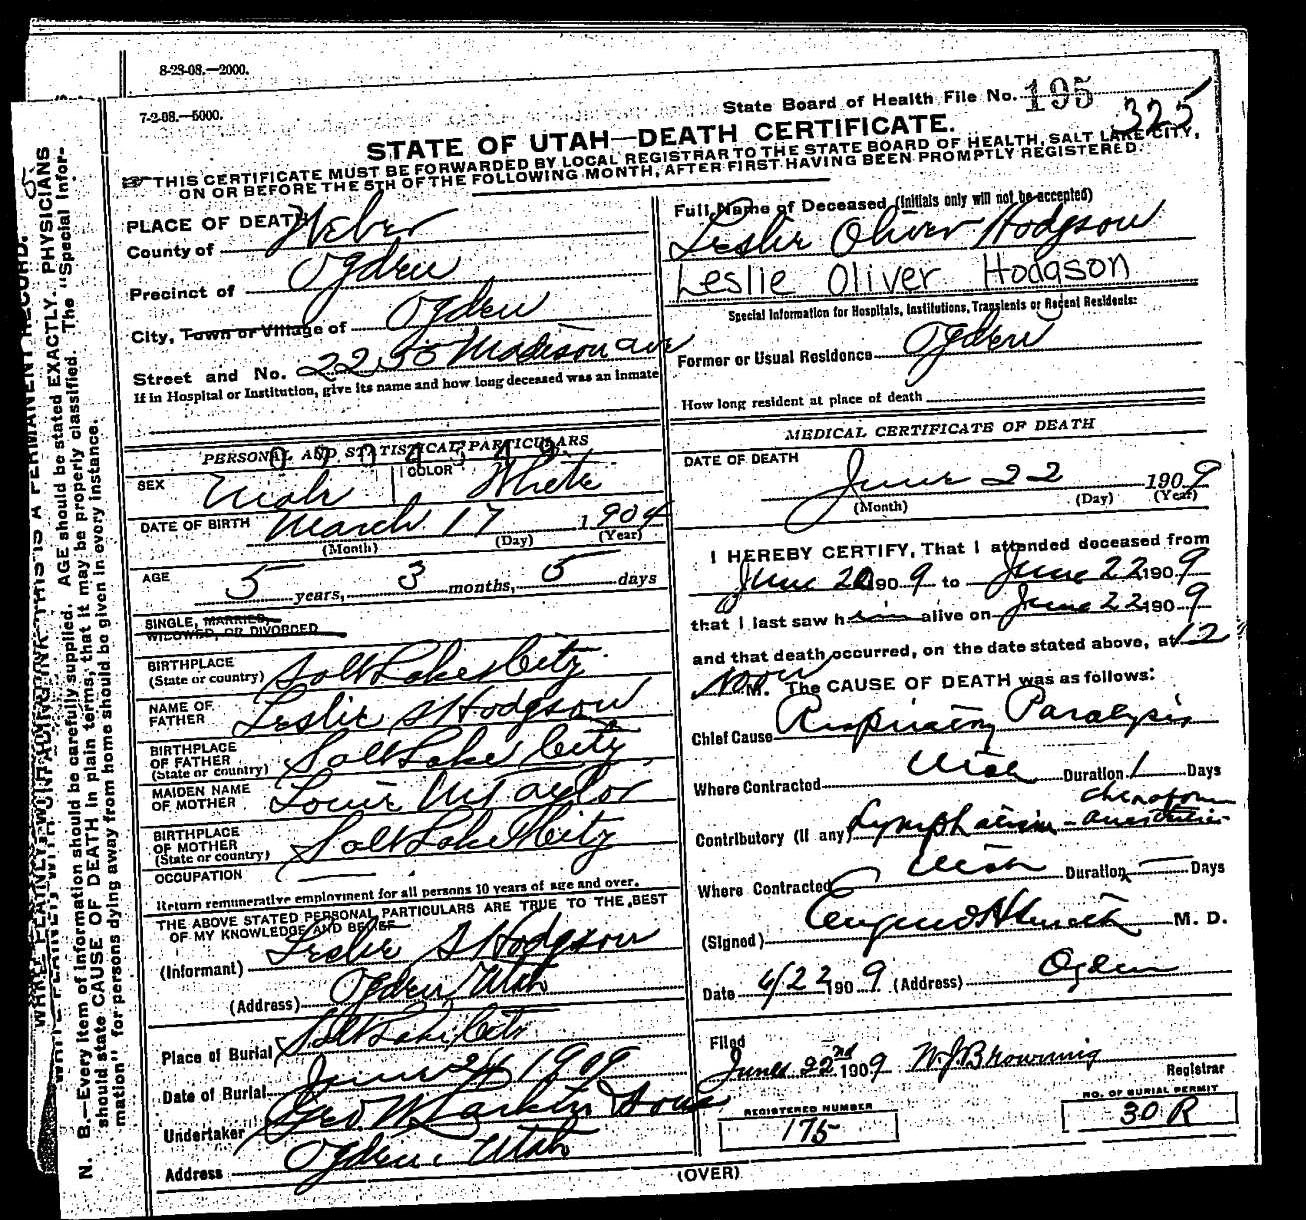 8-23-08.—2000.
7-2-08.—5000.
State Board of Health File No. 195
325
STATE OF UTAH—DEATH CERTIFICATE.
THIS CERTIFICATE MUST BE FORWARDED BY LOCAL REGISTRAR TO THE STATE BOARD OF HEALTH, SALT LAKE CITY,
ON OR BEFORE THE 5TH OF THE FOLLOWING MONTH, AFTER FIRST HAVING BEEN PROMPTLY REGISTERED.
PLACE OF DEATH
County of Weber
Precinct of Ogden
City, Town or Village of Ogden
Street and No. 2250 Madison ave
If in Hospital or Institution, give its name and how long deceased was an inmate
PERSONAL AND STATISTICAL PARTICULARS
SEX Male COLOR White
DATE OF BIRTH March 17 1904
(Month) (Day) (Year)
AGE 5 years, 3 months, 5 days
SINGLE, MARRIED,
WIDOWED, OR DIVORCED
BIRTHPLACE
(State or country) Salt Lake City
NAME OF
FATHER Leslie S Hodgson
BIRTHPLACE
OF FATHER
(State or country) Salt Lake City
MAIDEN NAME
OF MOTHER Louie M Taylor
BIRTHPLACE
OF MOTHER
(State or country) Salt Lake City
OCCUPATION
Return remunerative employment for all persons 10 years of age and over.
THE ABOVE STATED PERSONAL PARTICULARS ARE TRUE TO THE BEST
OF MY KNOWLEDGE AND BELIEF
(Informant) Leslie S Hodgson
(Address) Ogden Utah
Place of Burial Salt Lake City
Date of Burial June 24 1909
Undertaker Geo W Larkin & Sons
Address Ogden, Utah
Full Name of Deceased (Initials only will not be accepted)
Leslie Oliver Hodgson
Leslie Oliver Hodgson
Special Information for Hospitals, Institutions, Transients or Recent Residents:
Former or Usual Residence Ogden
How long resident at place of death
MEDICAL CERTIFICATE OF DEATH
DATE OF DEATH
June 22 1909
(Month) (Day) (Year)
I HEREBY CERTIFY, That I attended deceased from
June 20 1909 to June 22 1909
that I last saw him alive on June 22 1909
and that death occurred, on the date stated above, at 12
Noon M. The CAUSE OF DEATH was as follows:
Chief Cause Respiratory Paralysis
Where Contracted Utah Duration 1 Days
Contributory (if any) Lymphatism - chloroform
Where Contracted Utah Duration Days
(Signed) M. D.
Date 6/22 1909 (Address) Ogden
Filed
June 22nd 1909 W. J. Browning
Registrar
REGISTERED NUMBER
175
NO. OF BURIAL PERMIT
30 R
(OVER)
N. B.—Every item of information should be carefully supplied. AGE should be stated EXACTLY. PHYSICIANS
should state CAUSE OF DEATH in plain terms, that it may be properly classified. The "Special Infor-
mation" for persons dying away from home should be given in every instance.